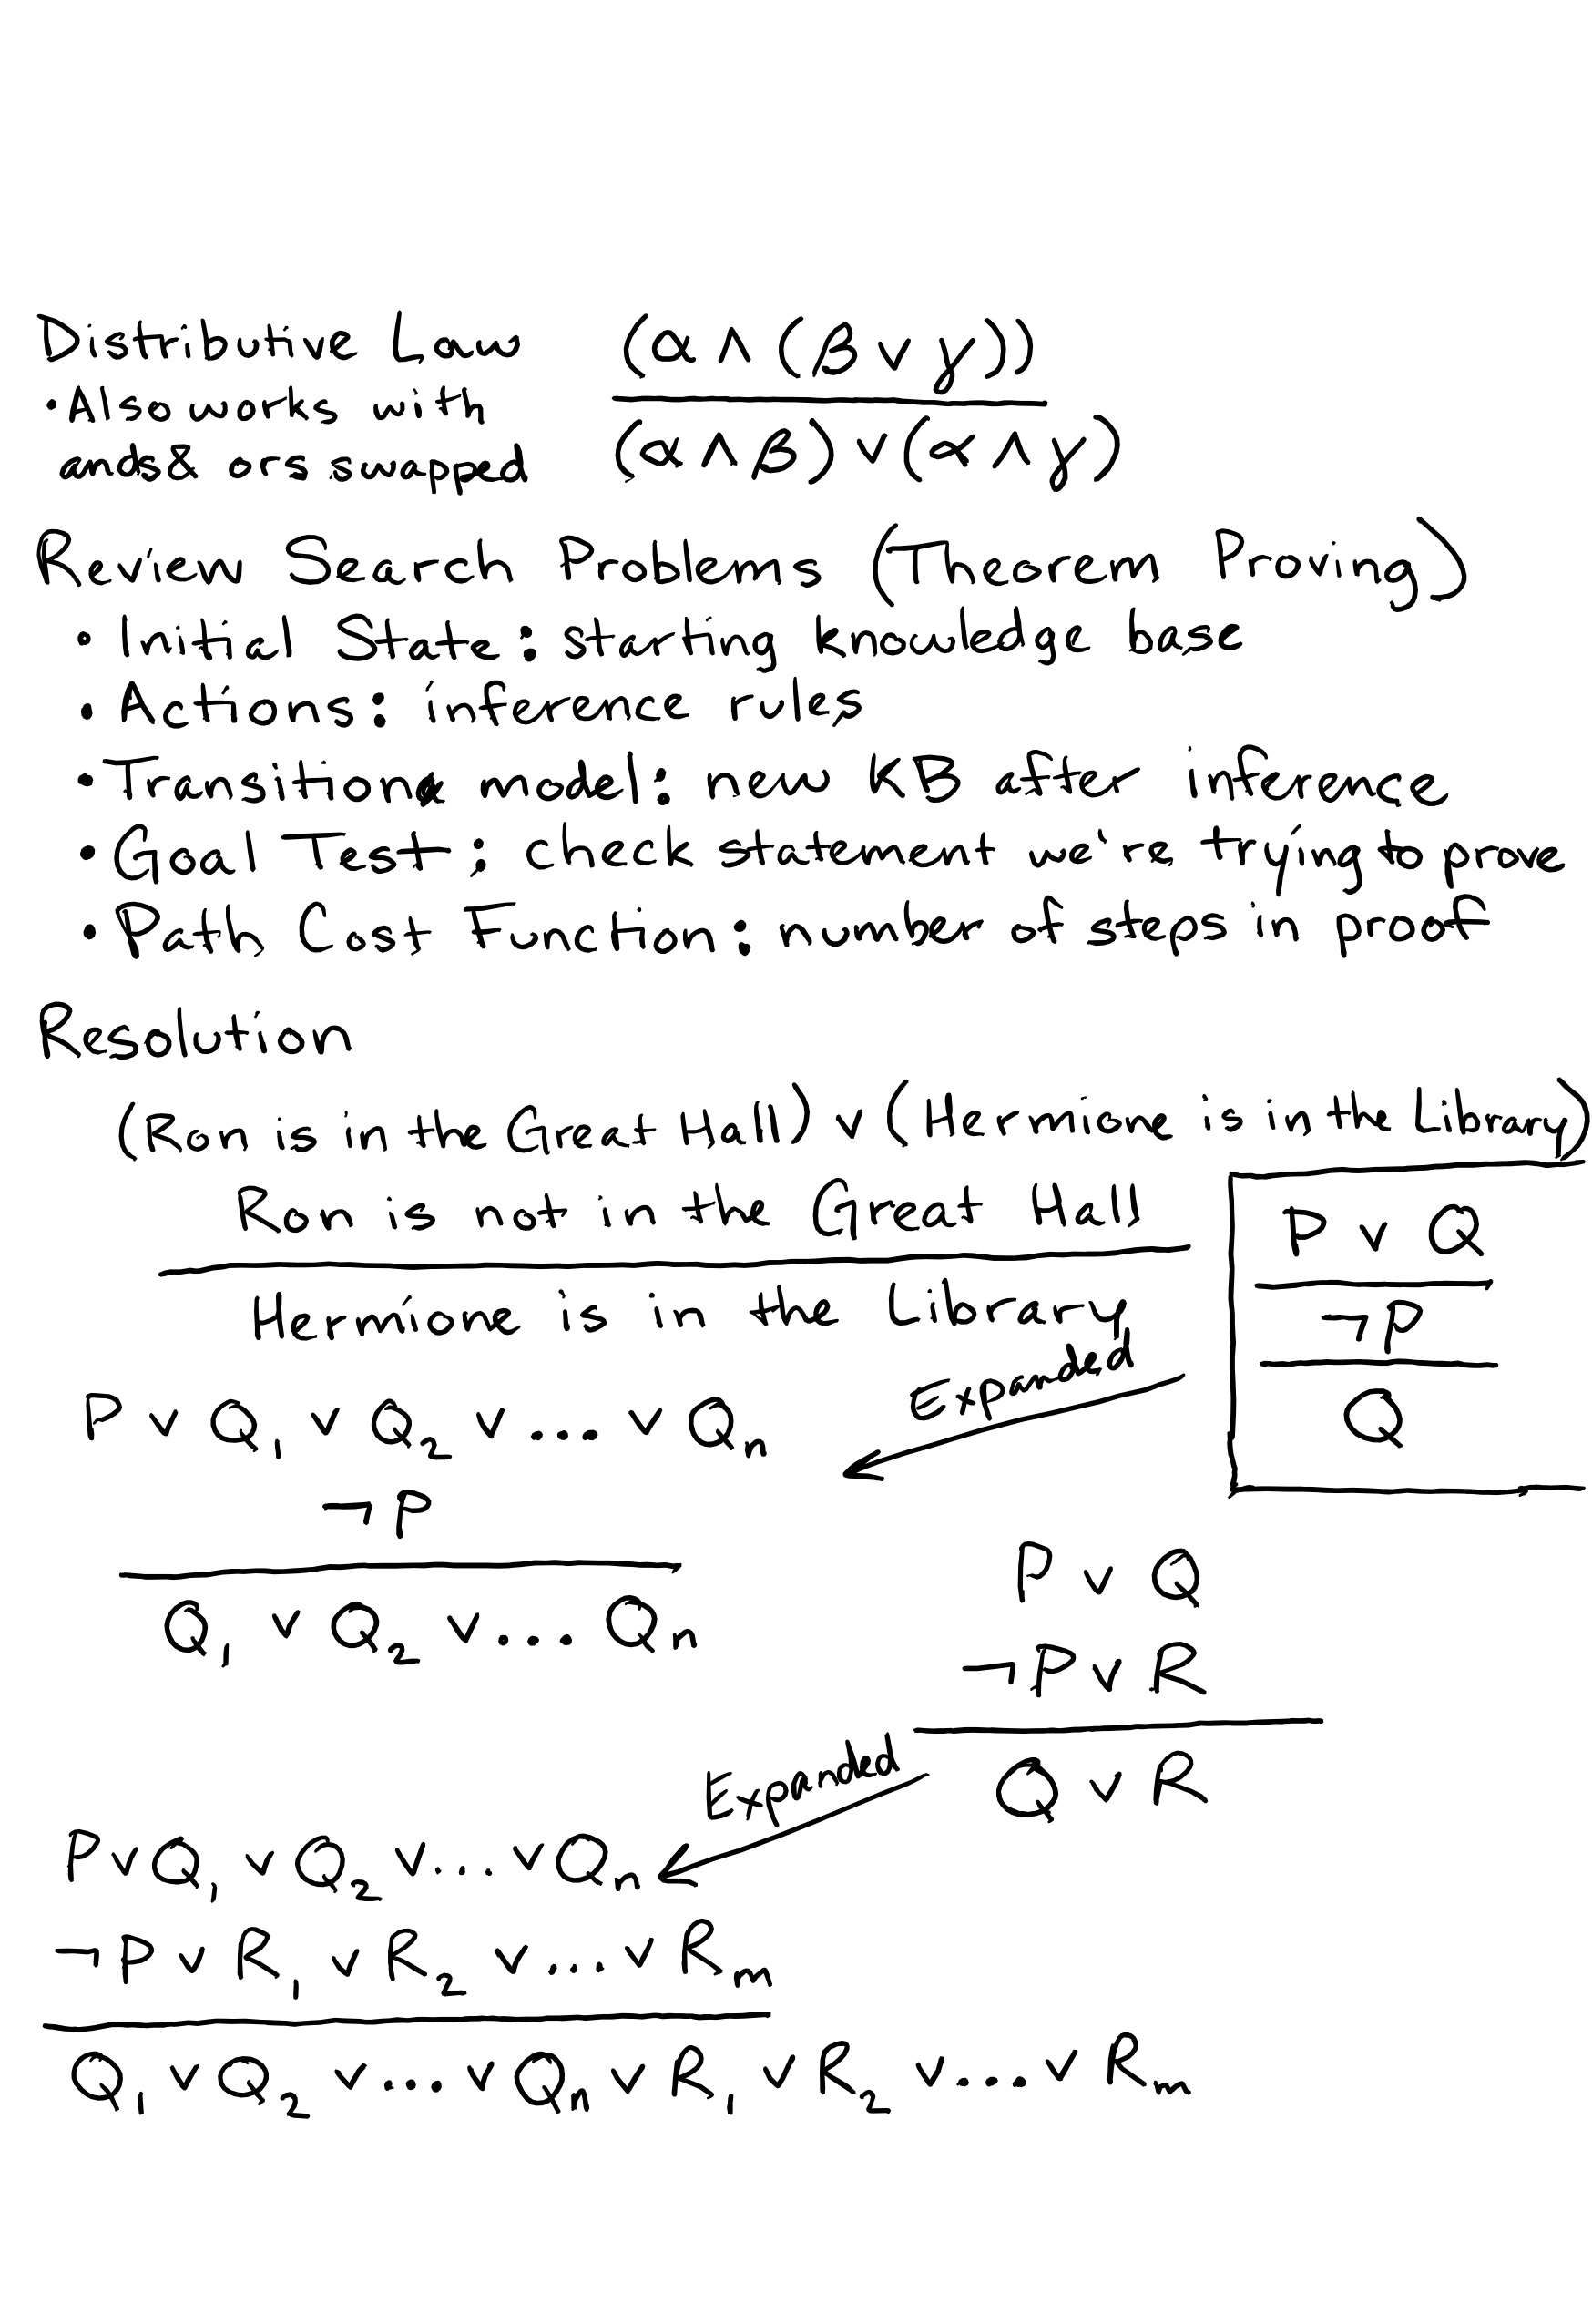 Distributive Law
(α ∧ (β ∨ γ))
• Also works with
ands & ors swapped
(α ∧ β) ∨ (α ∧ γ)
Review Search Problems (Theorem Proving)
• Initial State: starting knowledge base
• Actions: inference rules
• Transition model: new KB after inference
• Goal Test: check statement we're trying to prove
• Path Cost Function: number of steps in proof
Resolution
(Ron is in the Great Hall) ∨ (Hermione is in the Library)
Ron is not in the Great Hall
Hermione is in the Library
P ∨ Q
¬P
Q
Expanded
P ∨ Q₁ ∨ Q₂ ∨ ... ∨ Qₙ
¬P
Q₁ ∨ Q₂ ∨ .... Qₙ
P ∨ Q
¬P ∨ R
Q ∨ R
Expanded
P ∨ Q₁ ∨ Q₂ ∨ ... ∨ Qₙ
¬P ∨ R₁ ∨ R₂ ∨ ... ∨ Rₘ
Q₁ ∨ Q₂ ∨ .... ∨ Qₙ ∨ R₁ ∨ R₂ ∨ .... ∨ Rₘ